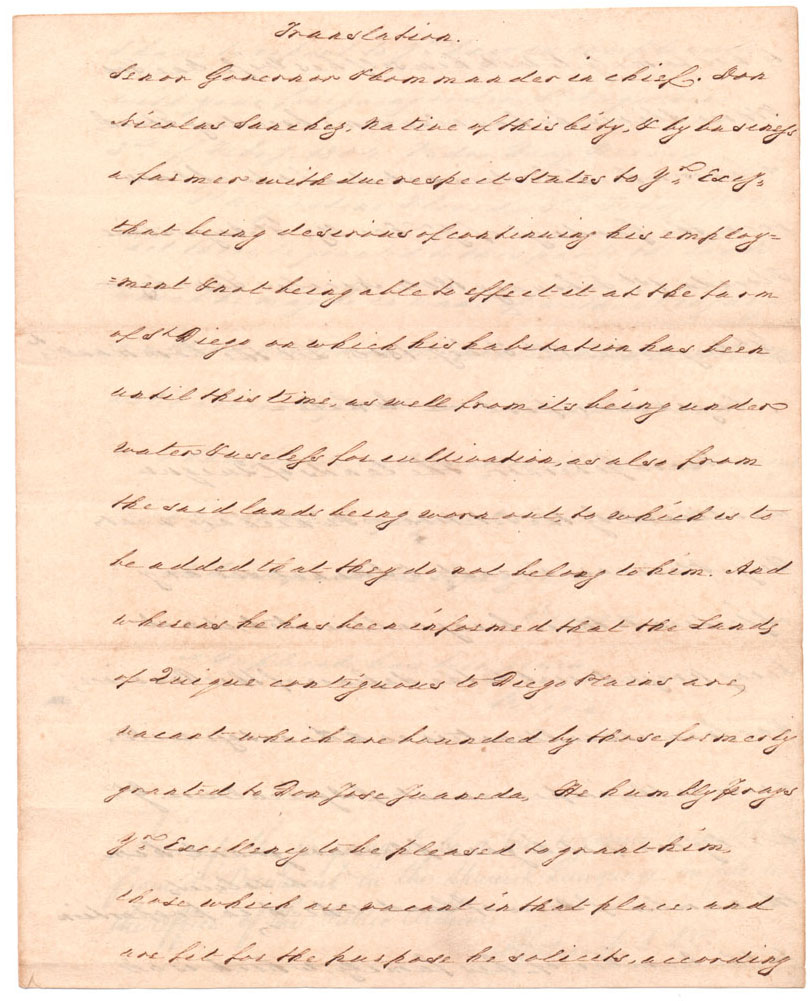 Translation.
Senor Governor & Commander in chief. Don
Nicolas Sanchez, Native of this City, & by business
a farmer with due respect States to Yr. Excy.
that being desirous of continuing his employ=
=ment & not being able to effect it at the farm
of St. Diego on which his habitation has been
until this time, as well from its being under
water & useless for cultivation, as also from
the said lands being worn out, to which is to
be added that they do not belong to him. And
whereas he has been informed that the Lands
of Quique contiguous to Diego Plains are,
vacant which are bounded by those formerly
granted to Don Jose Juaneda, He humbly Prays
Yr. Excellency to be pleased to grant him,
those which are vacant in that place, and
are fit for the purpose he solicits, according